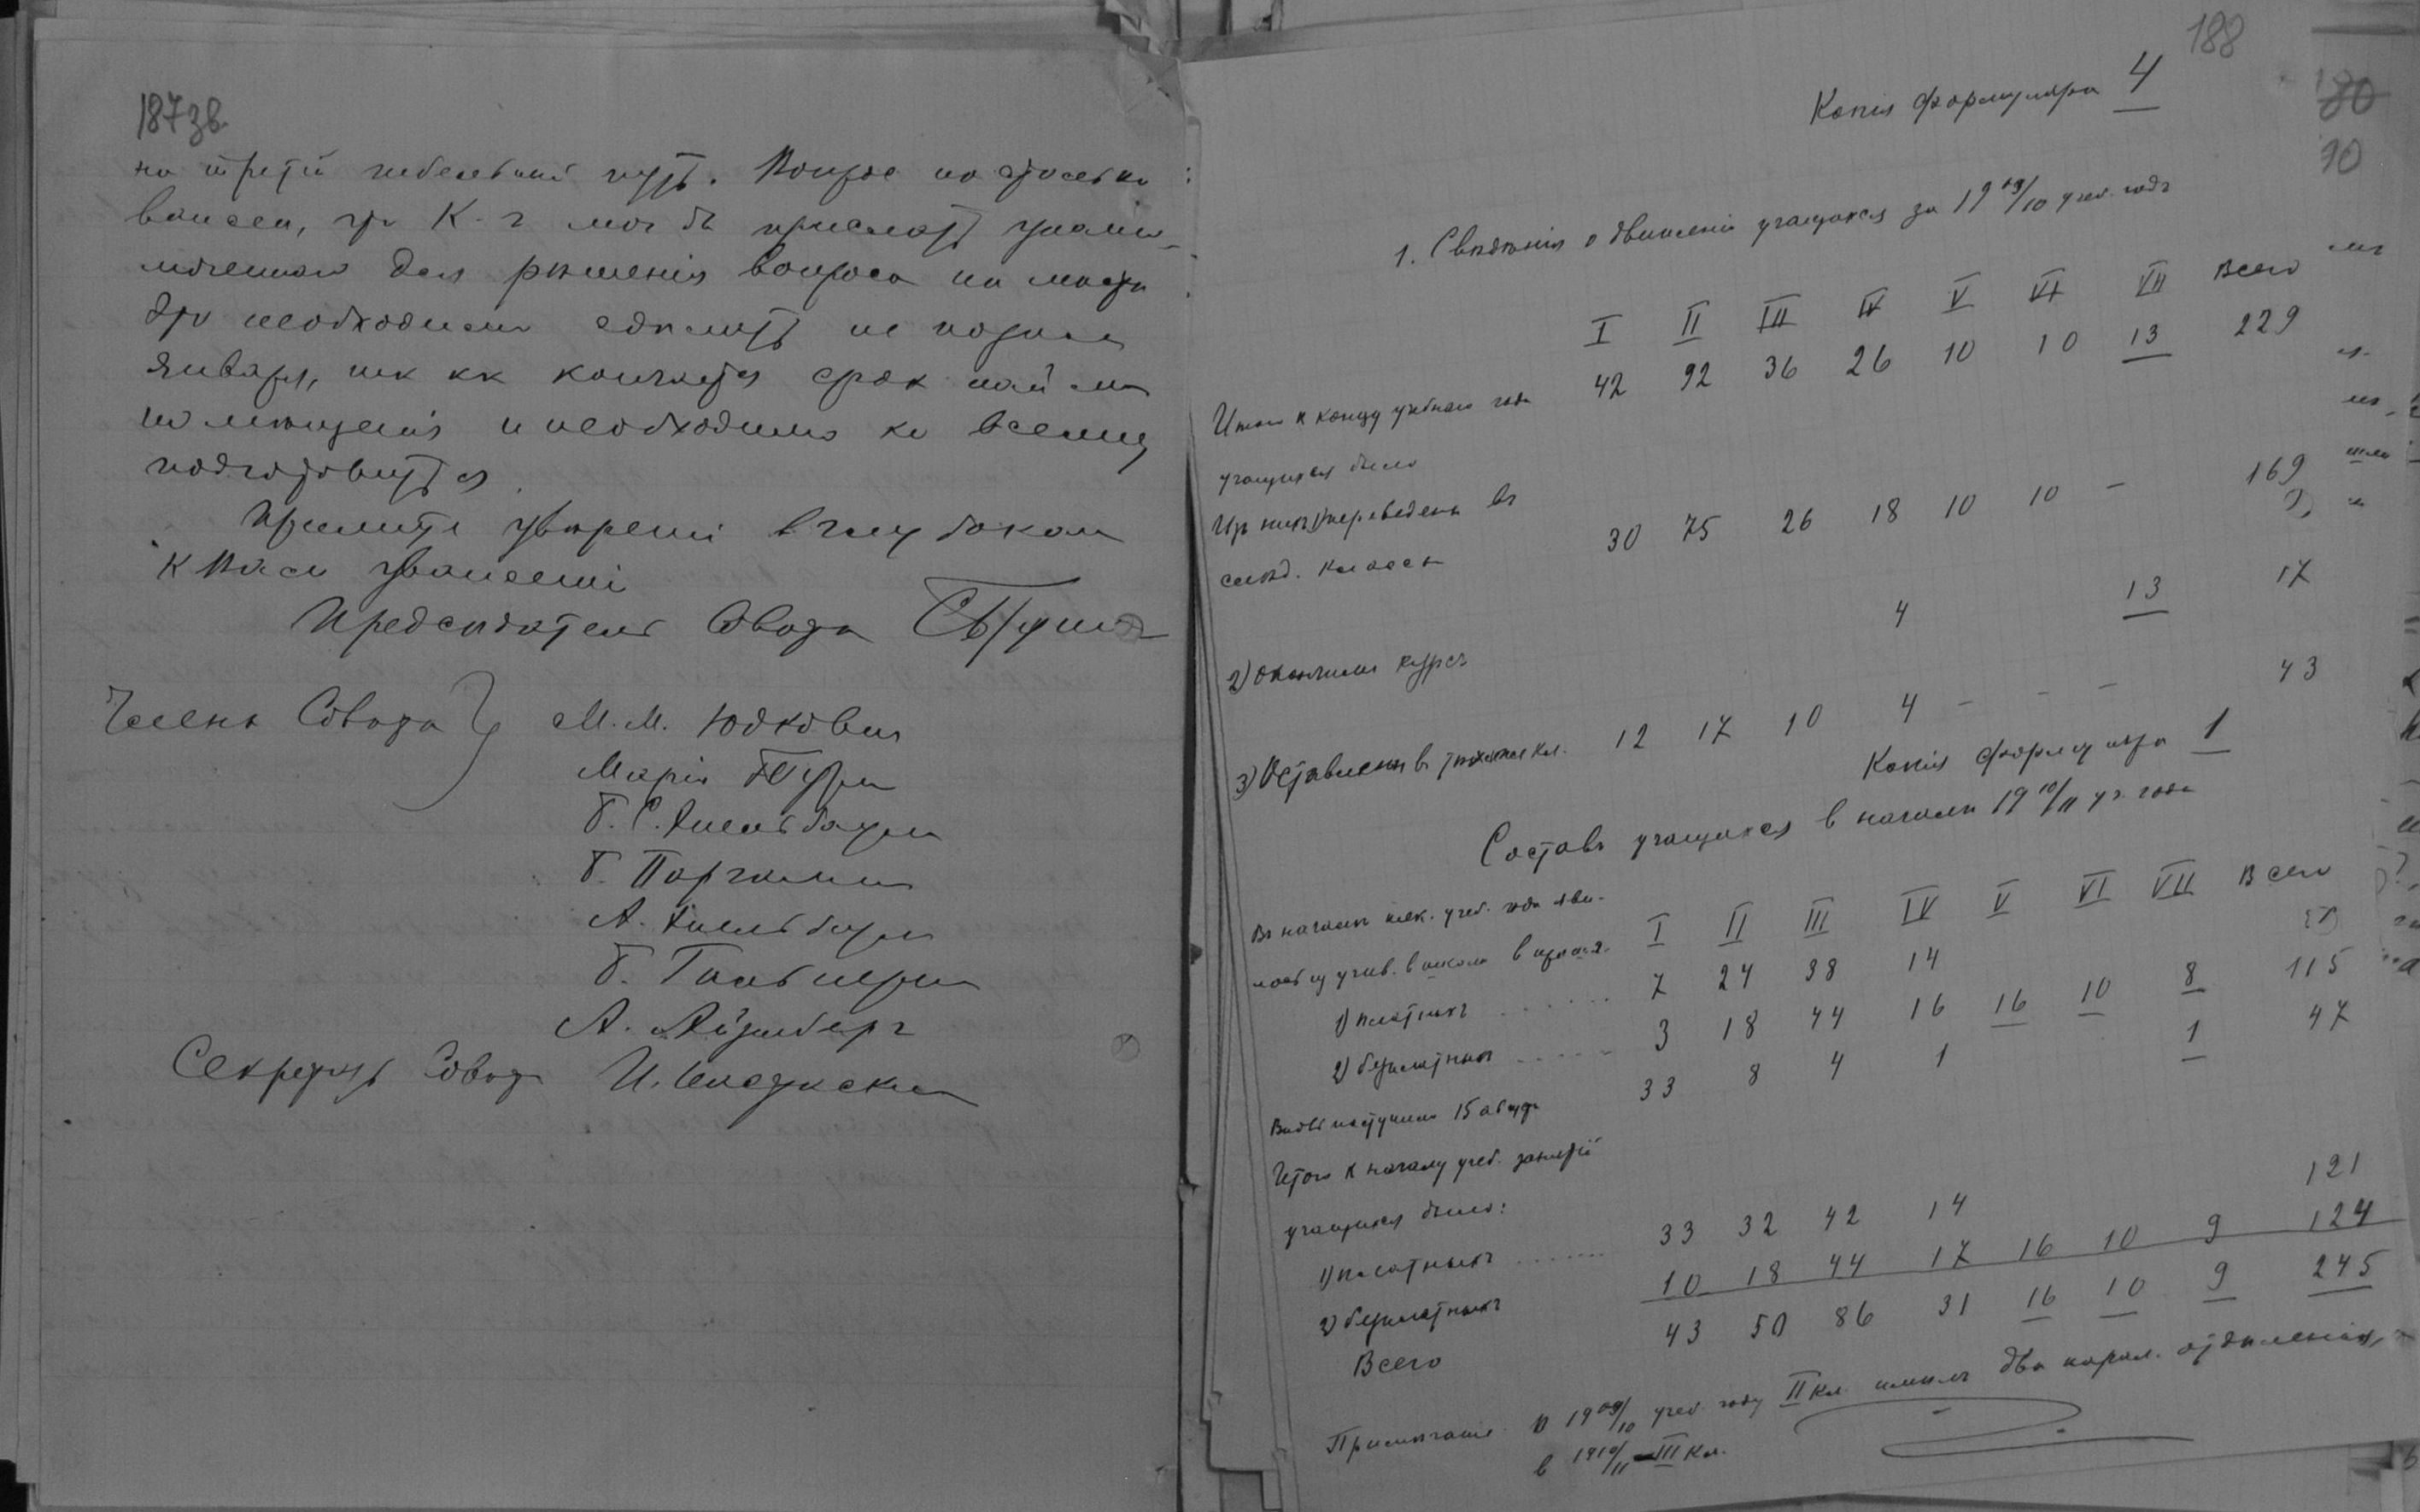 187 зв.
на третій гибельный путь. Вопрос но столько
важен, что К-т мог бы прислать уполно-
моченнаго для рѣшенія вопроса на мѣстѣ
Это необходимо сдѣлать не позже
Января, так как кончается срок найма
помѣщенія и необходимо ко всему
подготовиться.
Примите увѣреніе в глубоком
к Вам уваженіи
Предсѣдатель Совѣта
Члены Совѣта М. М. Юдкович
Марія
Б. С.
Б.
А.
Б.
А. Айзенберг
Секретарь Совѣта И.
188
180
90
Копія формуляра 4
1. Свѣдѣнія о движеніи учащихся за 19 09/10 учеб. годъ
I II III IV V VI VII Всего
Итого к концу учебнаго года 42 92 36 26 10 10 13 229
учащихся было
Из них 1) переведены въ
слѣд. классы 30 75 26 18 10 10 — 169
2) Окончили курсъ 4 13 17
3) Оставлены в тѣхже кл. 12 17 10 4 — — — 43
Копія формуляра 1
Составъ учащихся в началѣ 19 10/11 уч. года
I II III IV V VI VII Всего
Въ началѣ тек. учеб. года яви-
лось из учив. в школѣ в прошл.
1) платныхъ 7 24 38 14
2) безплатныхъ 3 18 44 16 16 10 8 115
Вновь поступило 15 авгус. 33 8 4 1 1 47
Итого к началу учеб. занятій
учащихся было:
1) платныхъ 33 32 42 14 121
2) безплатныхъ 10 18 44 17 16 10 9 124
Всего 43 50 86 31 16 10 9 245
Примѣчаніе. В 19 09/10 учеб. году II кл. имѣлъ два парал. отдѣленія,
в 1910/11 — III кл.